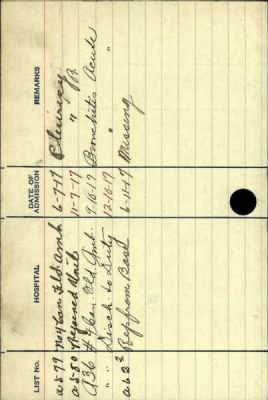 LIST No. HOSPITAL DATE OF ADMISSION REMARKS
a 579 No 4 Can Fld Amb 6-7-17 Pleurisy
a 580 Rejoined Unit 11-7-17 " "
a 36 4 Can. Fld Amb. 9-10-17 Bronchitis Acute
" " Disch. to Duty 12-10-17 "
a 62² Rep from Base 6-11-17 Missing